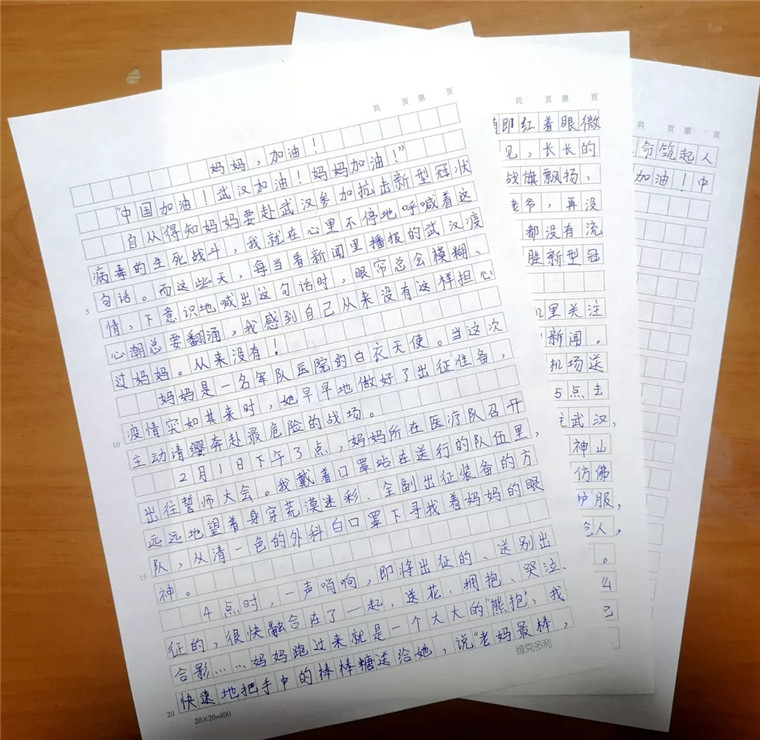 共 页 第 页
妈妈，加油！
“中国加油！武汉加油！妈妈加油！”
自从得知妈妈要赴武汉参加抗击新型冠状
病毒的生死战斗，我就在心里不停地呼喊着这
句话。而这些天，每当看新闻里播报的武汉疫
5
情，下意识地喊出这句话时，眼帘总会模糊、
心潮总要翻涌，我感到自己从来没有这样担心
过妈妈。从来没有！
妈妈是一名军队医院的白衣天使。当这次
疫情突如其来时，她早早地做好了出征准备，
10
主动请缨奔赴最危险的战场。
2月1日下午3点，妈妈所在医疗队召开
出征誓师大会。我戴着口罩站在送行的队伍里，
远远地望着身穿荒漠迷彩、全副出征装备的方
队，从清一色的外科白口罩下寻找着妈妈的眼
15
神。
4点时，一声哨响，即将出征的、送别出
征的，很快融合在了一起，送花、拥抱、哭泣、
合影……妈妈跑过来就是一个大大的“熊抱”，我
快速地把手中的棒棒糖送给她，说“老妈最棒，
20
20×20=400
共 页 第 页
即红着眼微
见，长长的
战旗飘扬，
老爷，再没
都没有流
胜新型冠
里关注
新闻。
机场送
5点去
武汉，
神山
仿佛
服，
人，
。
维克多利
共 页 第 页
命筑起人
加油！中